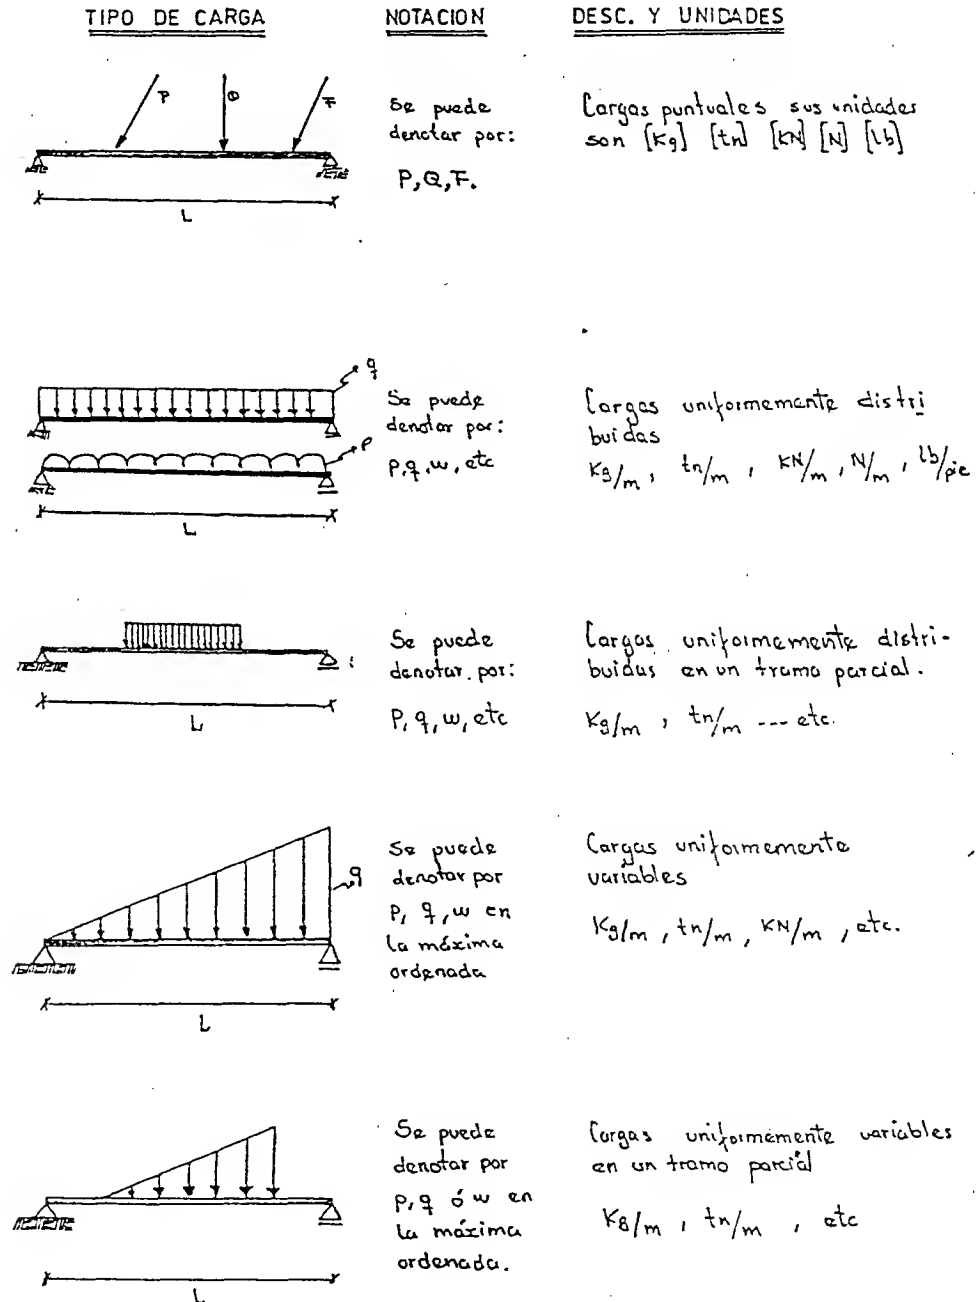 TIPO DE CARGA
NOTACION
DESC. Y UNIDADES
P
Q
F
L
Se puede
denotar por:
P, Q, F.
Cargas puntuales sus unidades
son [Kg] [tn] [KN] [N] [lb]
q
P
L
Se puede
denotar por:
p, q, w, etc
Cargas uniformemente distri
buidas
Kg/m, tn/m, KN/m, N/m, lb/pie
L
Se puede
denotar por:
P, q, w, etc
Cargas uniformemente distri-
buidas en un tramo parcial.
Kg/m, tn/m --- etc.
q
L
Se puede
denotar por
P, q, w en
la máxima
ordenada
Cargas uniformemente
variables
Kg/m, tn/m, KN/m, etc.
L
Se puede
denotar por
p, q ó w en
la máxima
ordenada.
Cargas uniformemente variables
en un tramo parcial
Kg/m, tn/m, etc